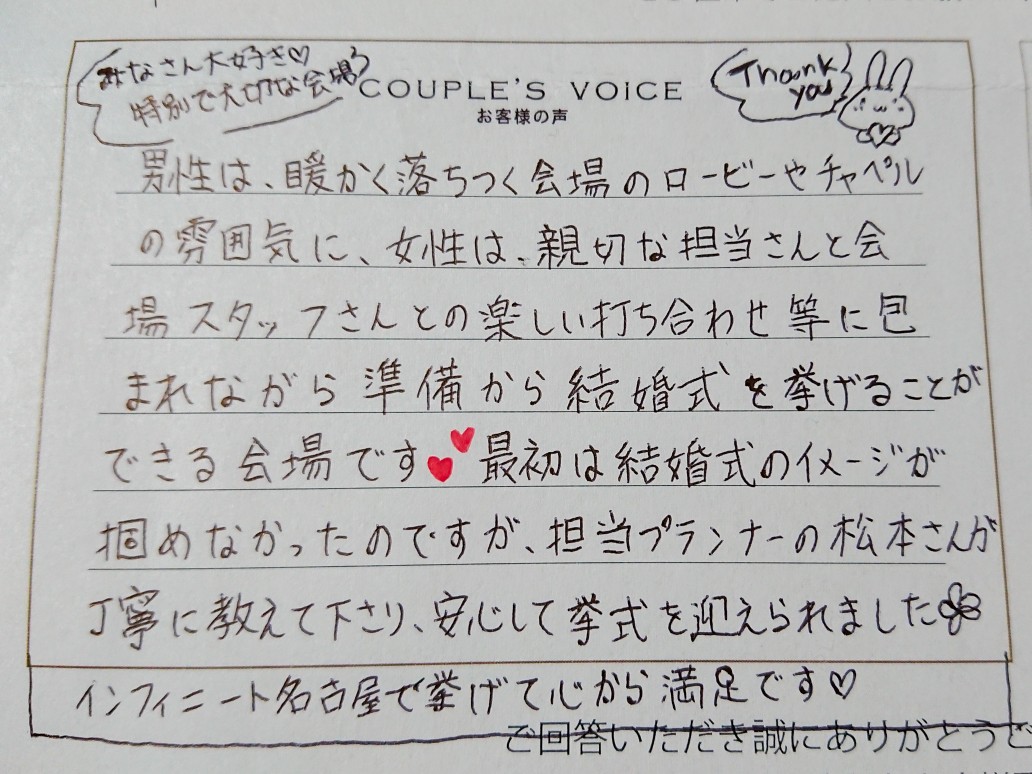 みなさん大好き♡
特別で大切な会場
COUPLE'S VOiCE
お客様の声
Thank
you
男性は、暖かく落ちつく会場のロービーやチャペル
の雰囲気に、女性は、親切な担当さんと会
場スタッフさんとの楽しい打ち合わせ等に包
まれながら準備から結婚式を挙げることが
できる会場です💕最初は結婚式のイメージが
掴めなかったのですが、担当プランナーの松本さんが
丁寧に教えて下さり、安心して挙式を迎えられました
インフィニート名古屋で挙げて心から満足です♡
ご回答いただき誠にありがとうご